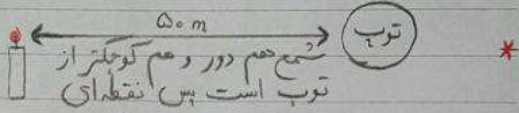 ۵۰ m
توپ
شمع هم دور و هم کوچکتر از
توپ است پس نقطه‌ای